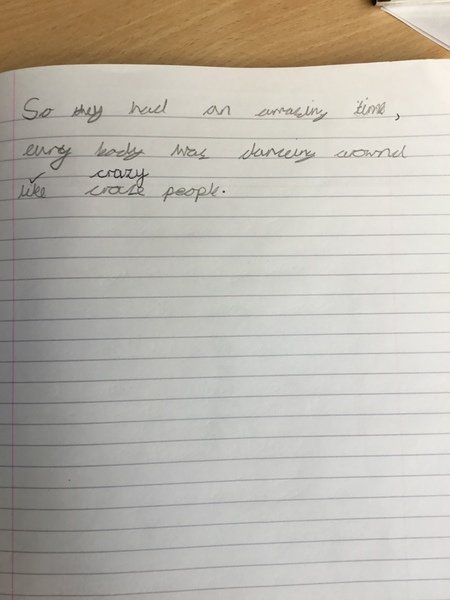 So they had an amazing time,
evrey body was dancing around
crazy
like craze people.